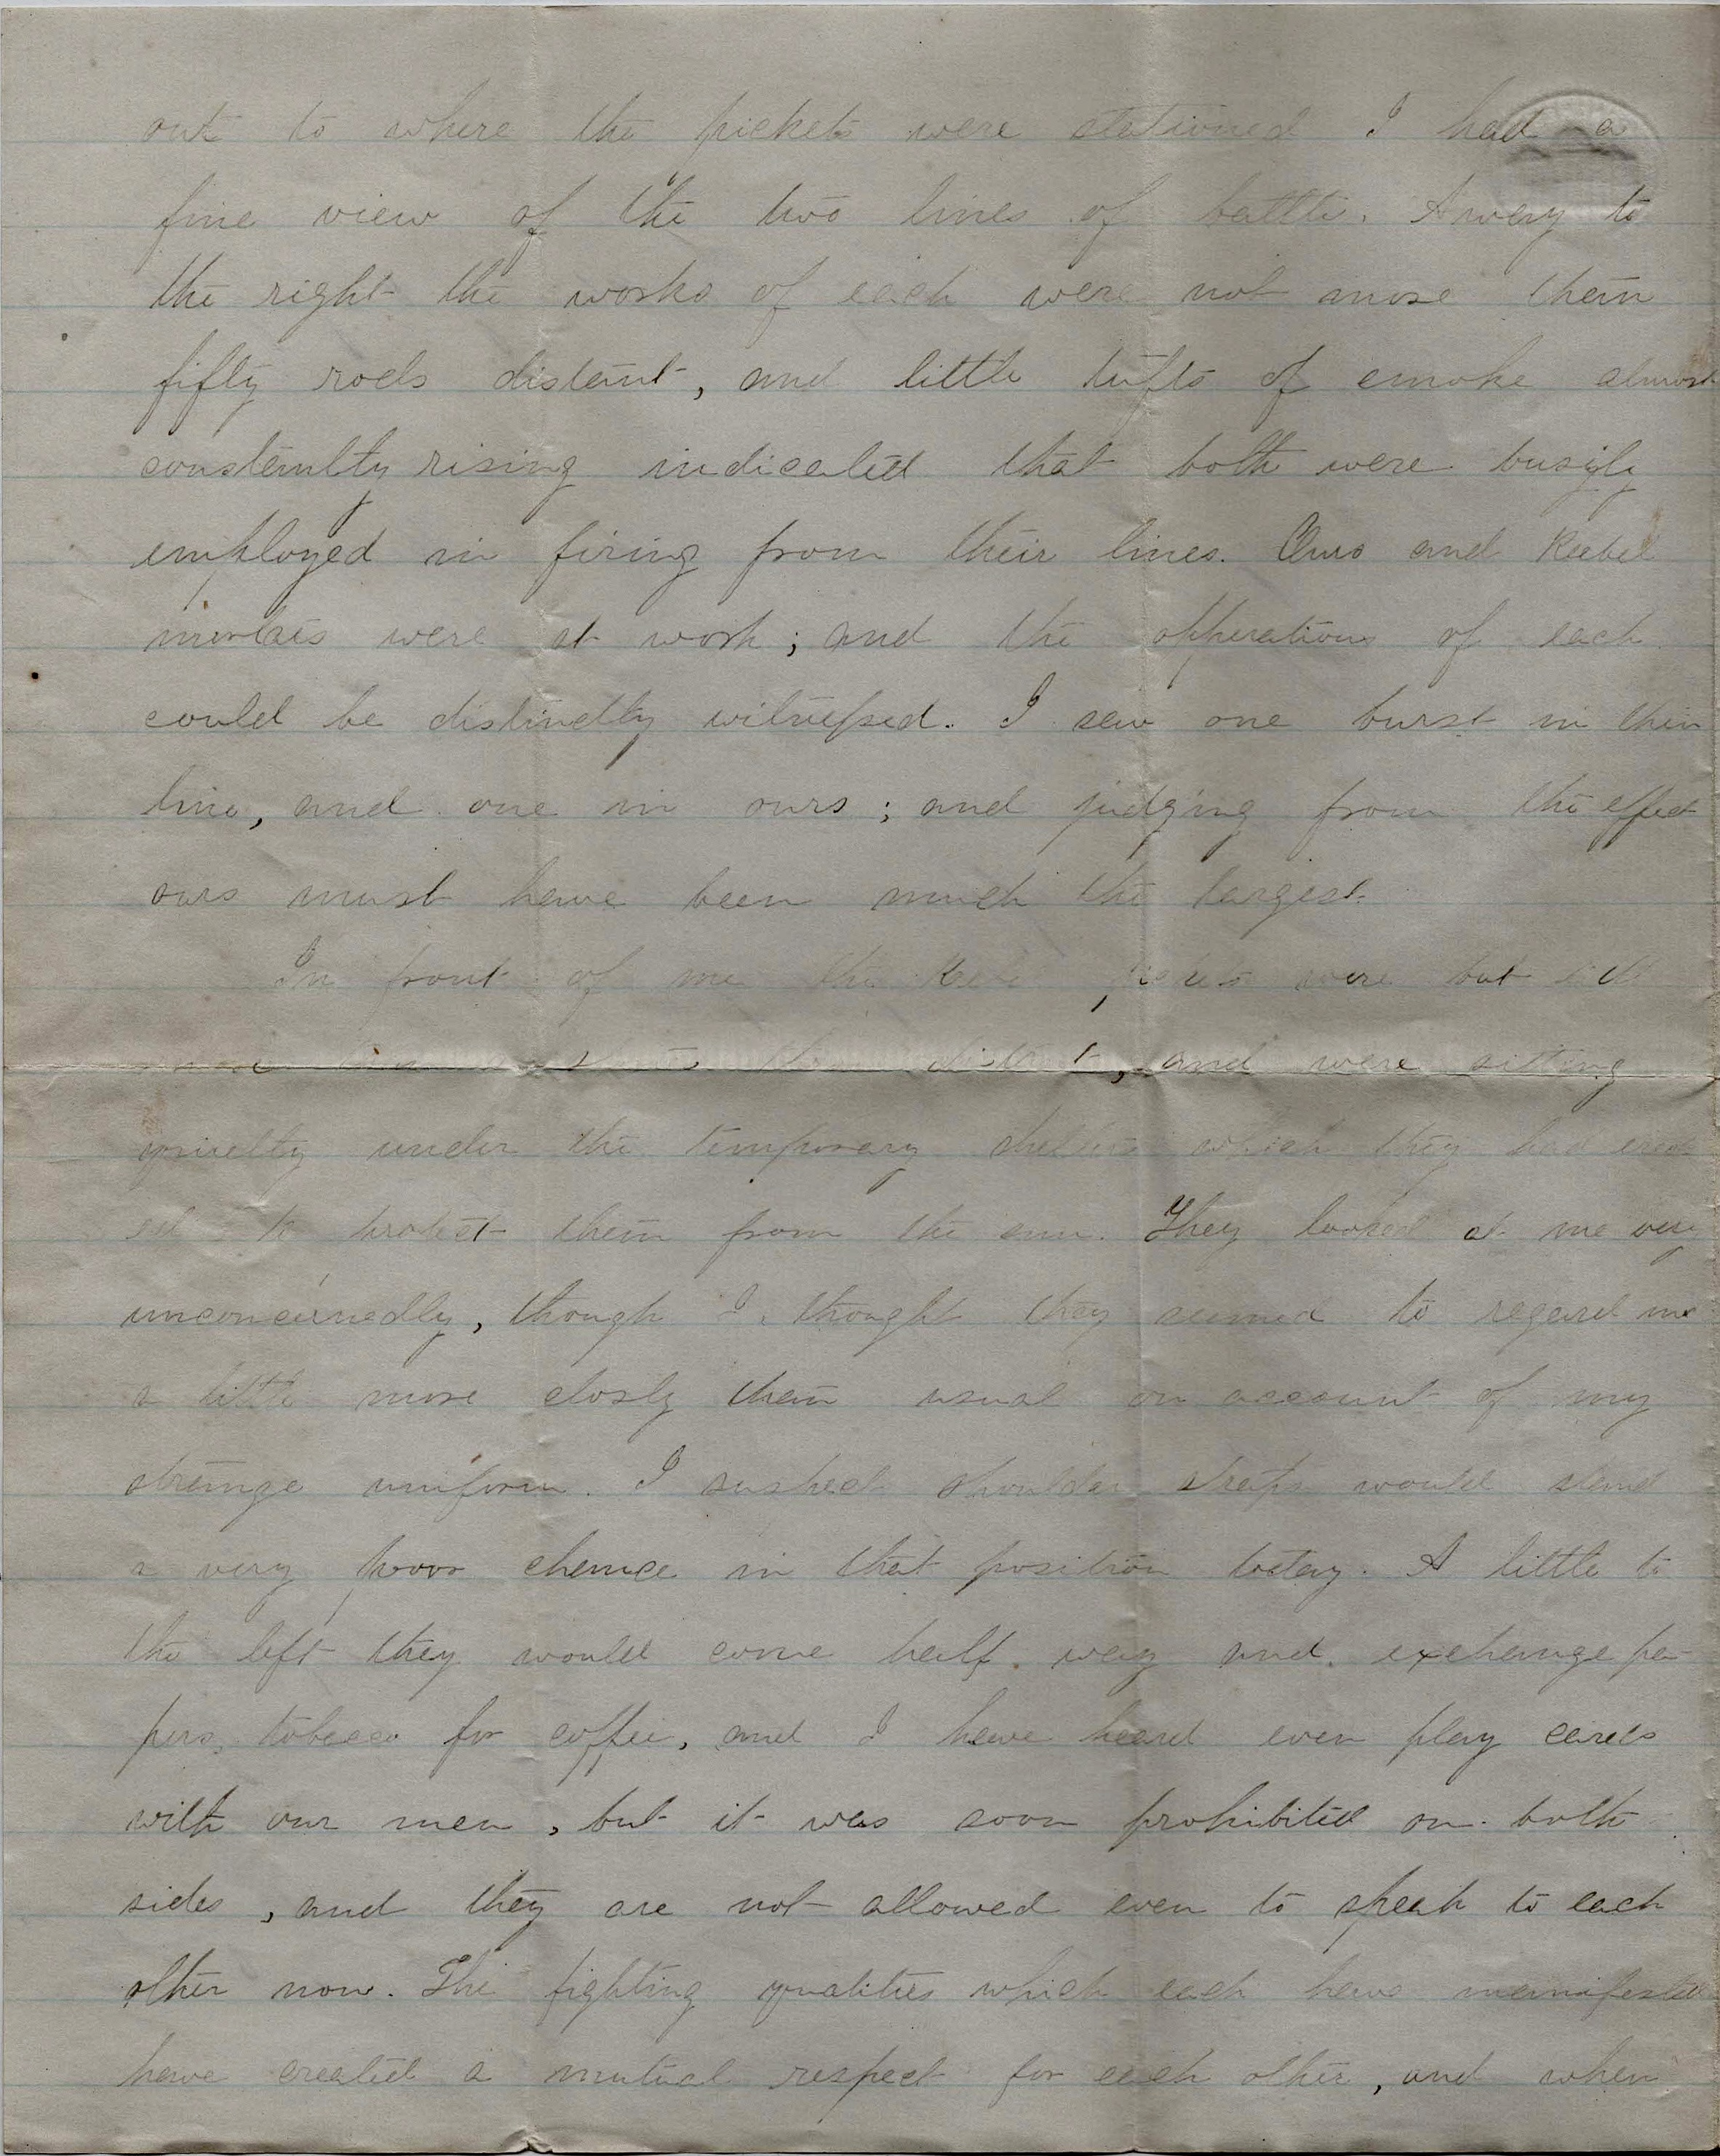 out to where the pickets were stationed I had a
fine view of the two lines of battle. Away to
the right the works of each were not more than
fifty rods distant, and little tufts of smoke almost
constantly rising indicated that both were busily
employed in firing from their lines. Ours and Reebel
mortars were at work; and the opperations of each
could be distinctly witnessed. I saw one burst in their
line, and one in ours; and judging from the effect
ours must have been much the largest.
In front of me the were but
distant, and were sitting
quietly under the temporary shelters which they had erect
ed to protect them from the sun. They looked at me very
unconcernedly, though I thought they seemed to regard me
a little more closly than usual on account of my
strange uniform. I suspect shoulder straps would stand
a very poor chance in that position today. A little to
the left they would come half way and exchange pa-
pers, tobacco for coffee, and I have heard even play cards
with our men, but it was soon prohibited on both
sides, and they are not allowed even to speak to each
other now. The fighting qualities which each have manifested
have created a mutual respect for each other, and when